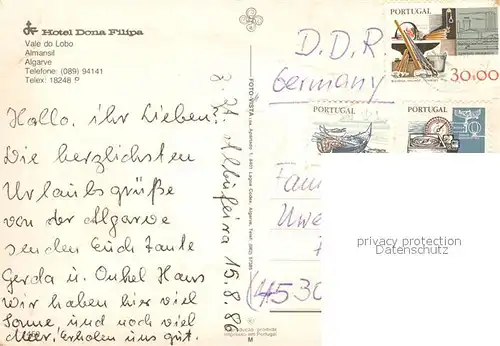 Hotel Dona Filipa
Vale do Lobo
Almansil
Algarve
Telefone: (089) 94141
Telex: 18248 P
Hallo, ihr Lieben!
Die herzlichsten
Urlaubsgrüße
von der Algarve
senden Euch Tante
Gerda u. Onkel Hans
Wir haben hier viel
Sonne, und noch viel
Meer. Erholen uns gut.
Albufeira 15.8.86
FOTO-VISTA
M
D.D.R
Germany
PORTUGAL
30.00
PORTUGAL
PORTUGAL
Fam
Uwe
4530
privacy protection
Datenschutz